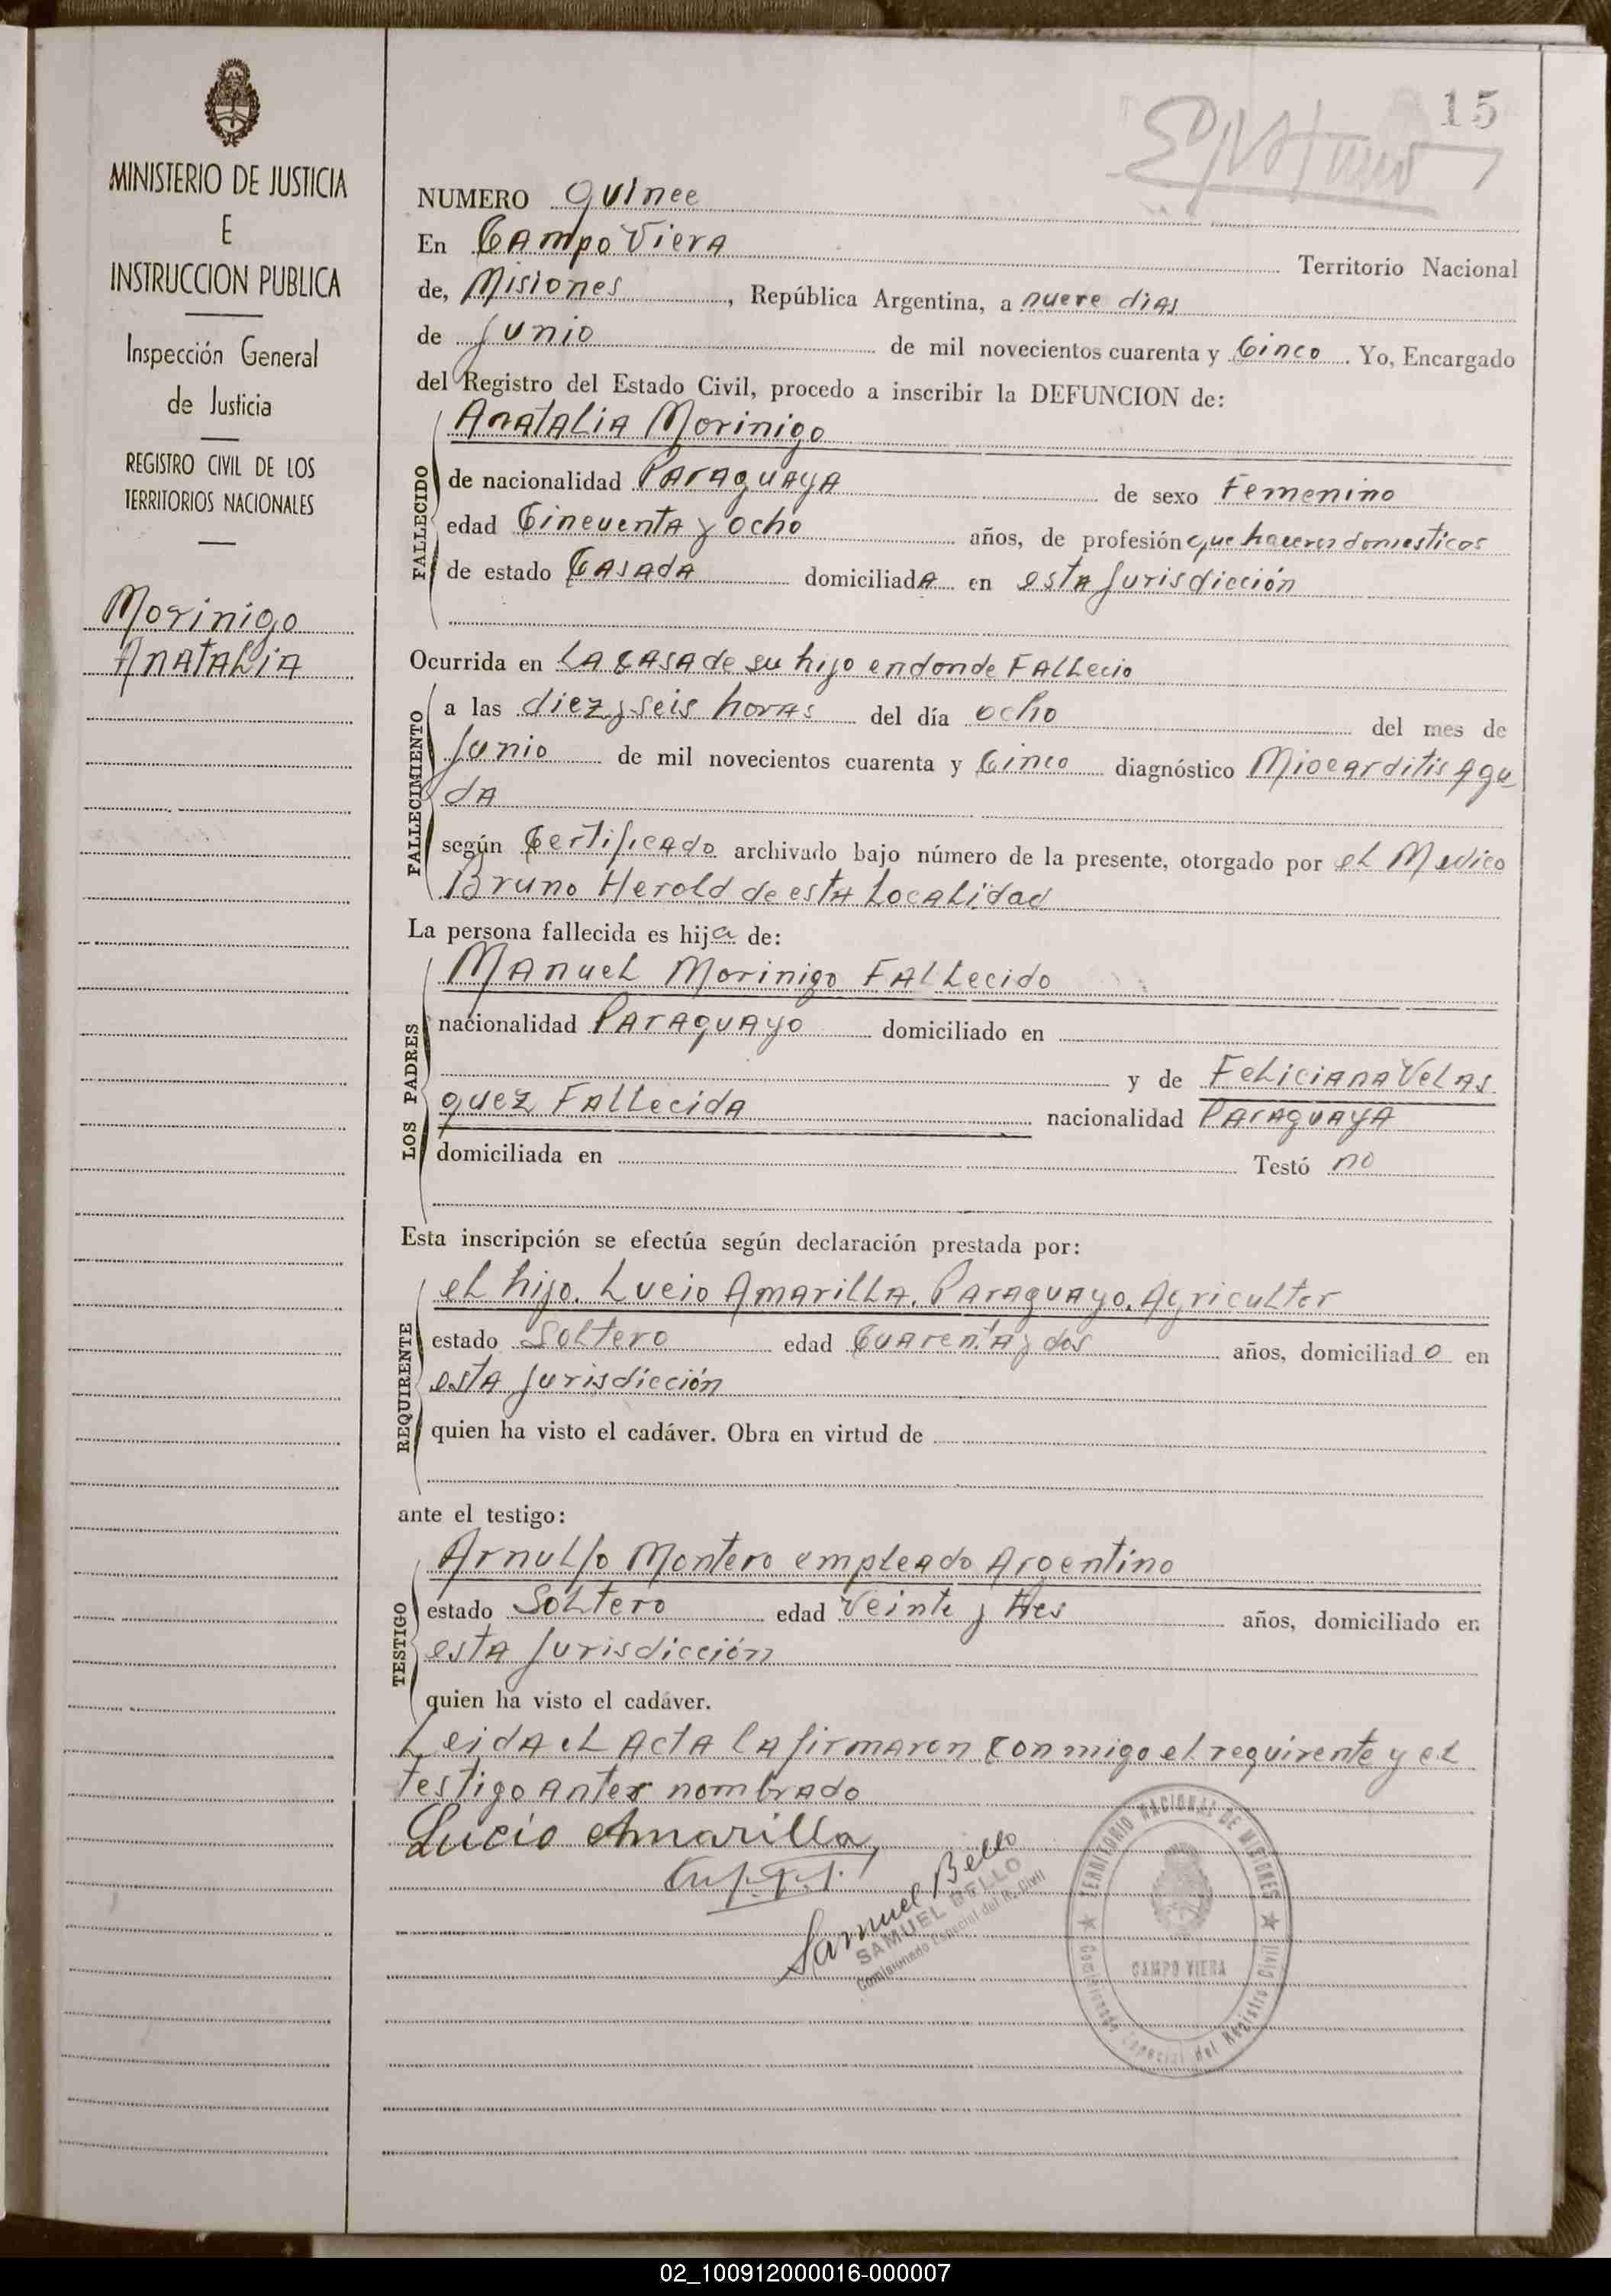 15
MINISTERIO DE JUSTICIA
E
INSTRUCCION PUBLICA
Inspección General
de Justicia
REGISTRO CIVIL DE LOS
TERRITORIOS NACIONALES
Morinigo
Anatalia
NUMERO quince
En Campo Viera Territorio Nacional
de, Misiones, República Argentina, a nueve dias
de Junio de mil novecientos cuarenta y Cinco. Yo, Encargado
del Registro del Estado Civil, procedo a inscribir la DEFUNCION de:
Anatalia Morinigo
FALLECIDO
de nacionalidad Paraguaya de sexo Femenino
edad Cincuenta y ocho años, de profesión que haceres domesticos
de estado Casada domiciliada en esta Jurisdicción
Ocurrida en La Casa de su hijo endonde Fallecio
FALLECIMIENTO
a las diez y seis horas del día ocho del mes de
Junio de mil novecientos cuarenta y Cinco diagnóstico Miocarditis Agu
da
según Certificado archivado bajo número de la presente, otorgado por el Medico
Bruno Herold de esta Localidad
La persona fallecida es hija de:
LOS PADRES
Manuel Morinigo Fallecido
nacionalidad Paraguayo domiciliado en
y de Feliciana Velas
quez Fallecida nacionalidad Paraguaya
domiciliada en Testó no
Esta inscripción se efectúa según declaración prestada por:
REQUIRENTE
el hijo. Lucio Amarilla. Paraguayo. Agricultor
estado Soltero edad Cuarenta y dos años, domiciliado en
esta Jurisdicción
quien ha visto el cadáver. Obra en virtud de
ante el testigo:
TESTIGO
Arnulfo Montero empleado Argentino
estado Soltero edad Veinte y tres años, domiciliado en
esta Jurisdicción
quien ha visto el cadáver.
Leida el Acta la firmaron Conmigo el requirente y el
testigo antes nombrado
Lucio Amarilla
Samuel Bello
SAMUEL BELLO
Comisionado Especial del R. Civil
TERRITORIO NACIONAL DE MISIONES
CAMPO VIERA
Comisionado Especial del Registro Civil
02_100912000016-000007